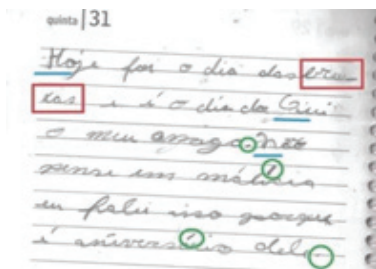 quinta 31
Hoje foi o dia das bru
xas e é o dia da Gini
o meu amgo Não
pense em malicia
eu falei isso porque
é aniversário dele